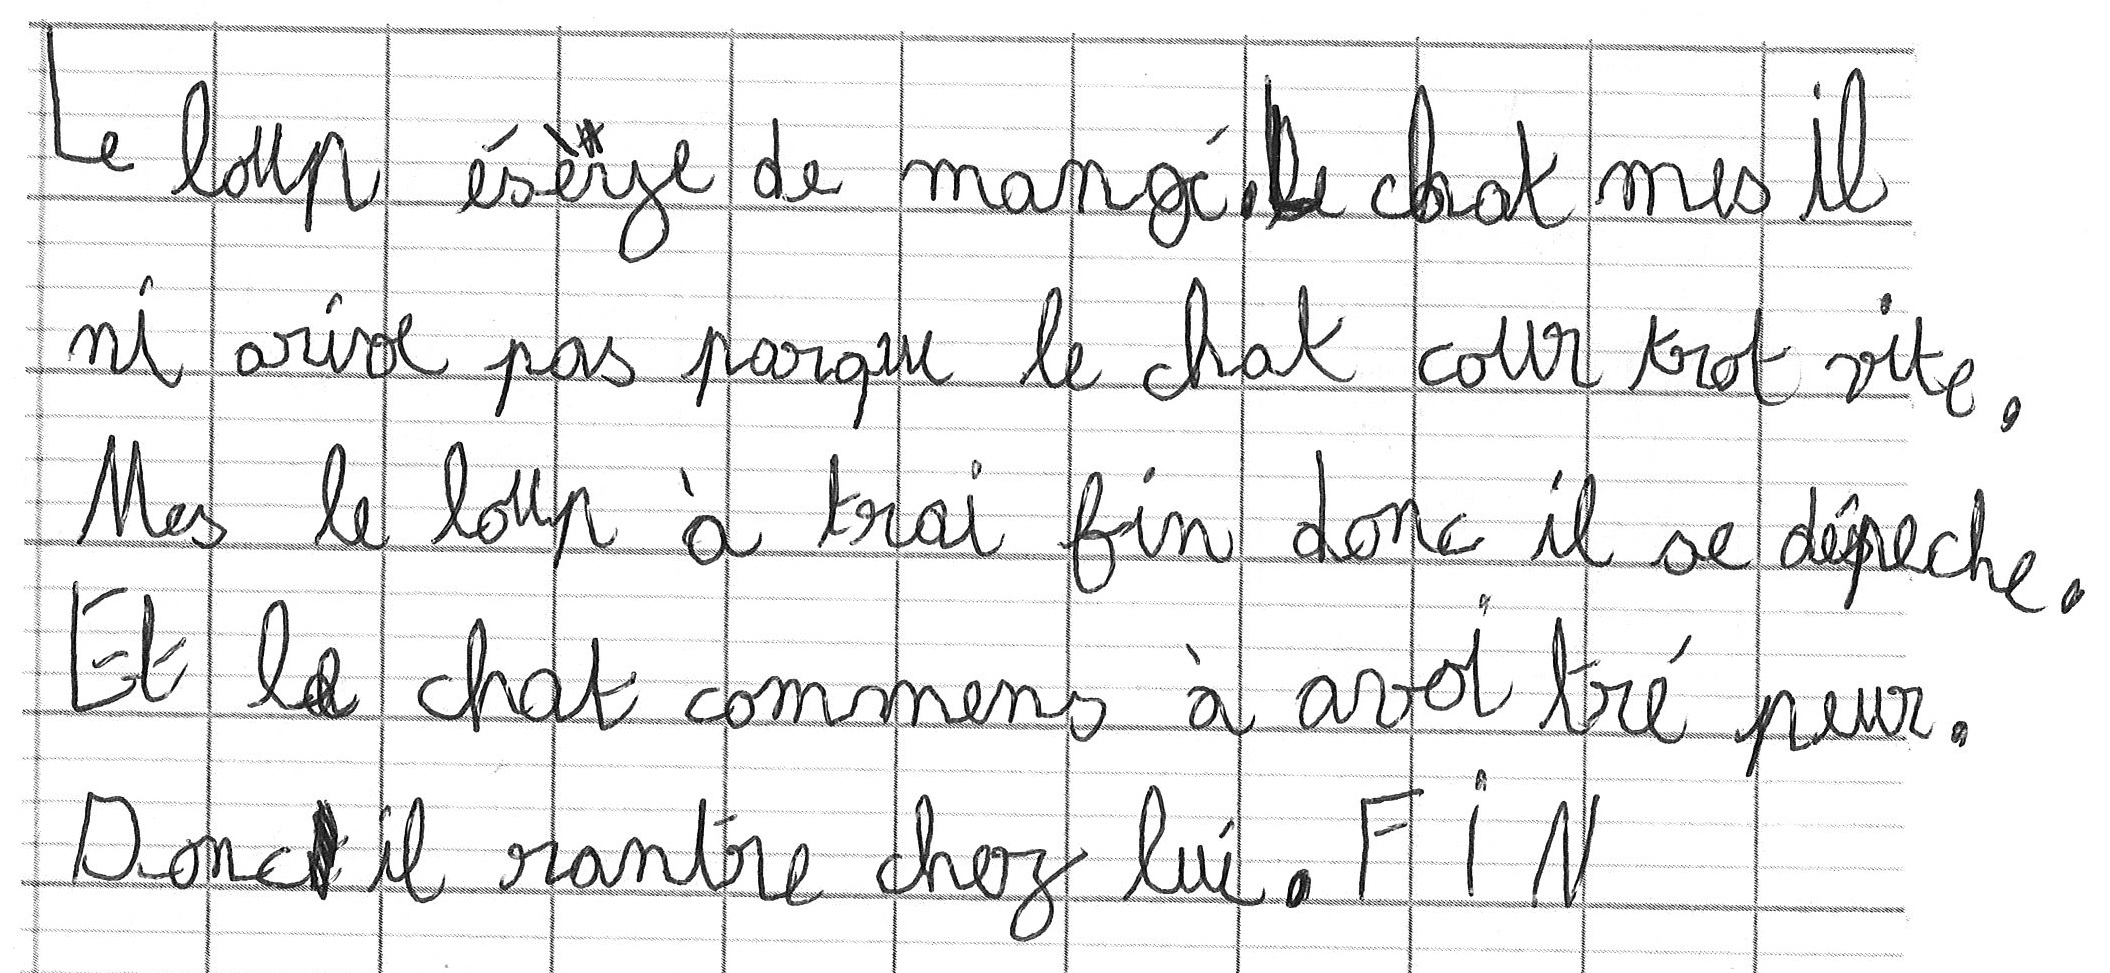 Le loup ésèye de mangé. le chat mes il
ni arive pas parque le chat cour trot vite.
Mes le loup à trai fin donc il se dépeche.
Et le chat commens à avoi tré peur.
Donc il rantre chez lui. FiN